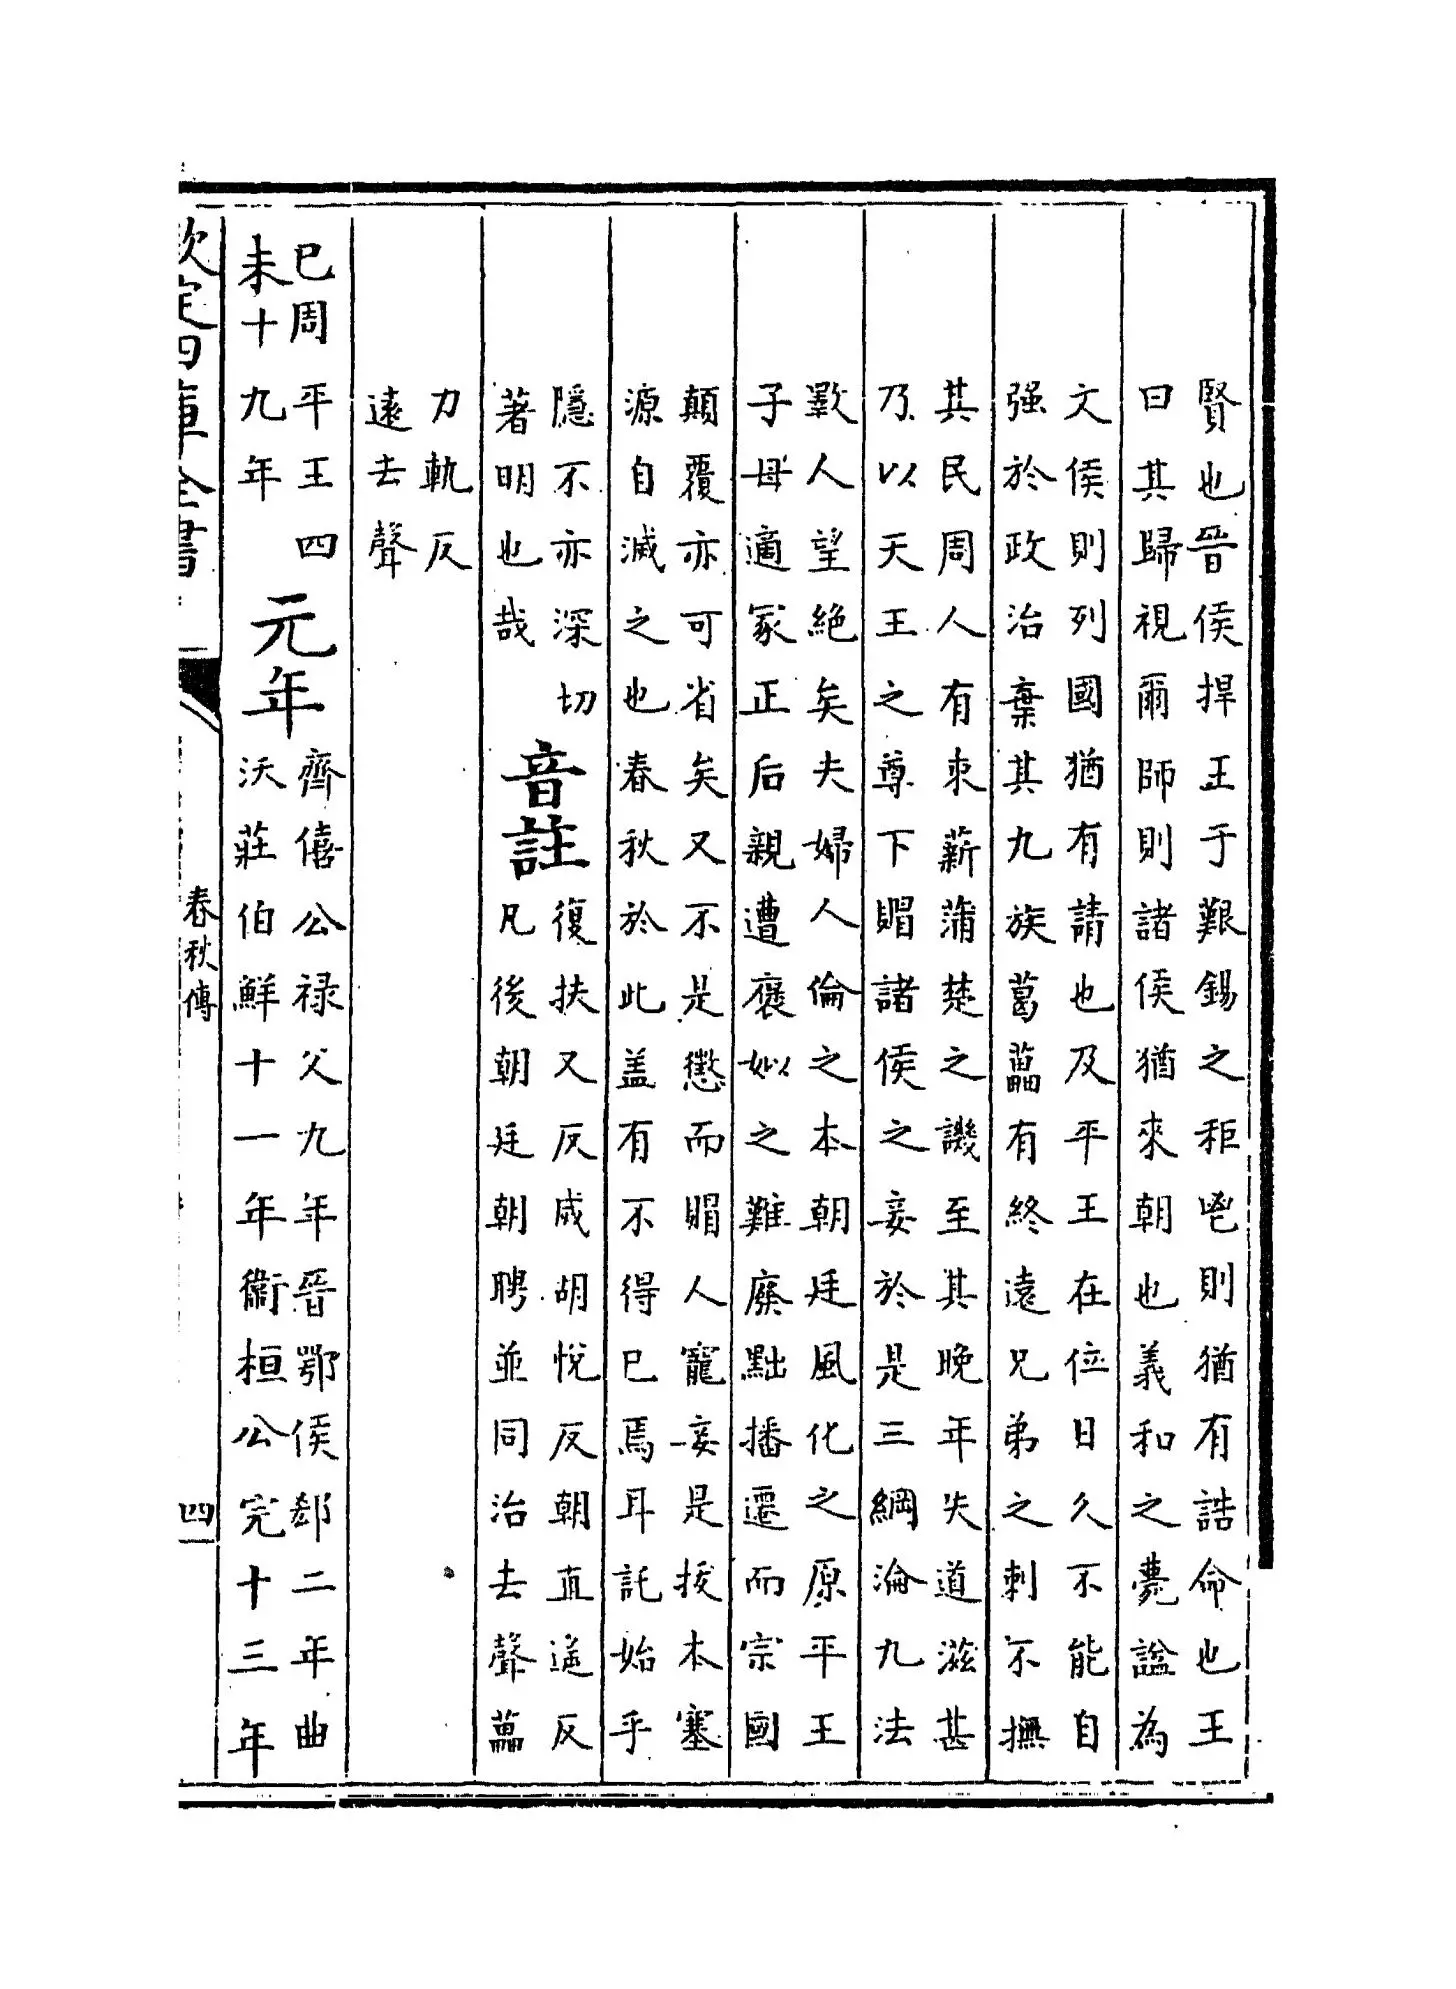 賢也晉侯捍王于艱錫之秬鬯則猶有誥命也王
曰其歸視爾師則諸侯猶來朝也義和之薨諡為
文侯則列國猶有請也及平王在位日久不能自
强於政治棄其九族葛藟有終遠兄弟之刺不撫
其民周人有束薪蒲楚之譏至其晚年失道滋甚
乃以天王之尊下賵諸侯之妾於是三綱淪九法
斁人望絶矣夫婦人倫之本朝廷風化之原平王
子母適冢正后親遭褒姒之難廢黜播遷而宗國
顛覆亦可省矣又不是懲而賵人寵妾是拔本塞
源自滅之也春秋於此盖有不得已焉耳託始乎
隱不亦深切
著明也哉
音註
復扶又反咸胡悅反朝直遥反
凡後朝廷朝聘並同治去聲藟
力軌反
遠去聲
巳周平王四
未十九年
元年
齊僖公禄父九年晉鄂侯郄二年曲
沃莊伯鮮十一年衞桓公完十三年
欽定四庫全書
春秋傳
四